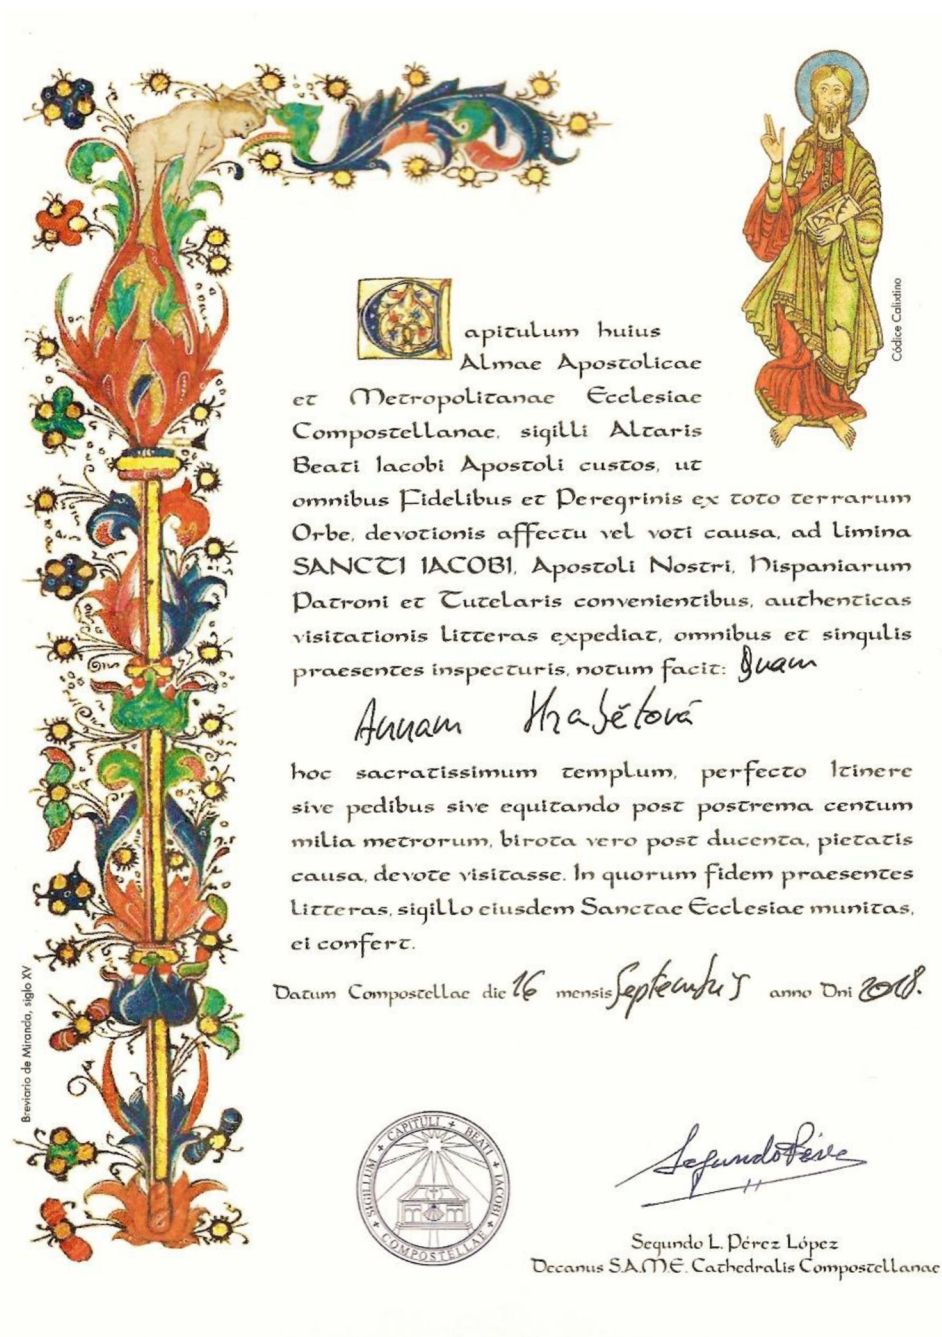 Capitulum huius
Almae Apostolicae
et Metropolitanae Ecclesiae
Compostellanae, sigilli Altaris
Beati Iacobi Apostoli custos, ut
omnibus Fidelibus et Peregrinis ex toto terrarum
Orbe, devotionis affectu vel voti causa, ad limina
SANCTI IACOBI, Apostoli Nostri, Hispaniarum
Patroni et Tutelaris convenientibus, authenticas
visitationis litteras expediat, omnibus et singulis
praesentes inspecturis, notum facit: Dnam
Annam Hrabětová
hoc sacratissimum templum, perfecto Itinere
sive pedibus sive equitando post postrema centum
milia metrorum, birota vero post ducenta, pietatis
causa, devote visitasse. In quorum fidem praesentes
litteras, sigillo eiusdem Sanctae Ecclesiae munitas,
ei confert.
Datum Compostellae die 16 mensis Septembris anno Dni 2018.
SIGILLUM + CAPITULI + BEATI + IACOBI + COMPOSTELLAE +
Segundo Pérez
Segundo L. Pérez López
Decanus S.A.M.E. Cathedralis Compostellanae
Códice Calixtino
Breviario de Miranda, siglo XV